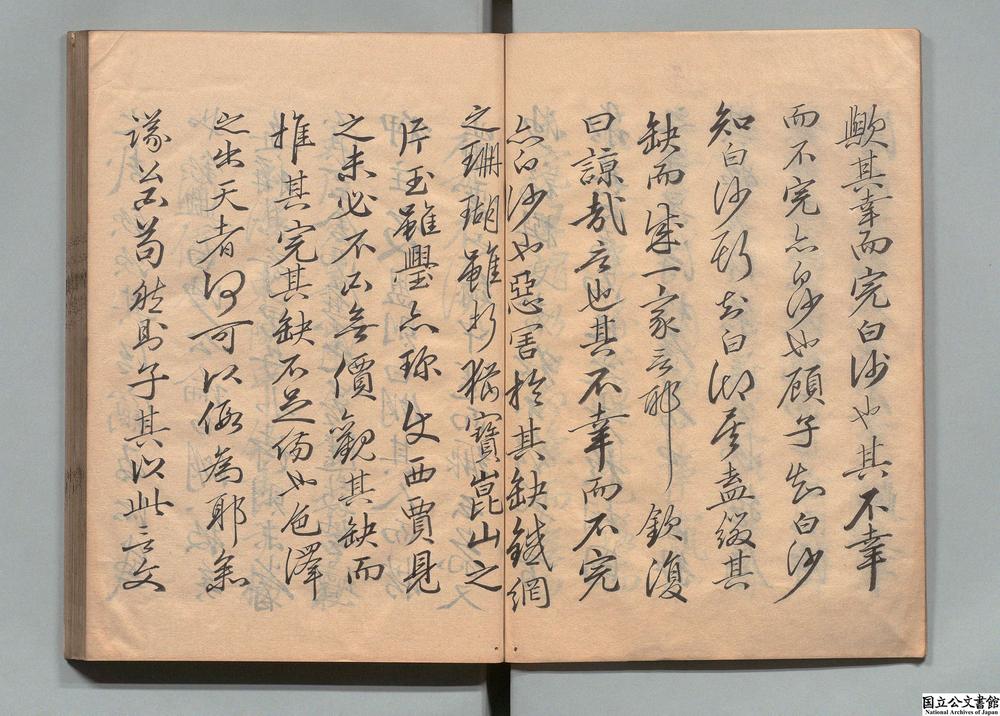 歟其幸而完白沙也其不幸
而不完亦白沙也顧子知白沙
知白沙所知白湖
缺而成一家言耶欽復
曰諒哉言也其不幸而不完
亦白沙也惡害於其缺鐵網
之珊瑚雖折猶寶崑山之
片玉雖璺亦珍使西賈見
之未必不以無價觀其缺而
推其完其缺不足傷也色澤
之出天者何可以偽為耶
遂以此言文
国立公文書館
National Archives of Japan